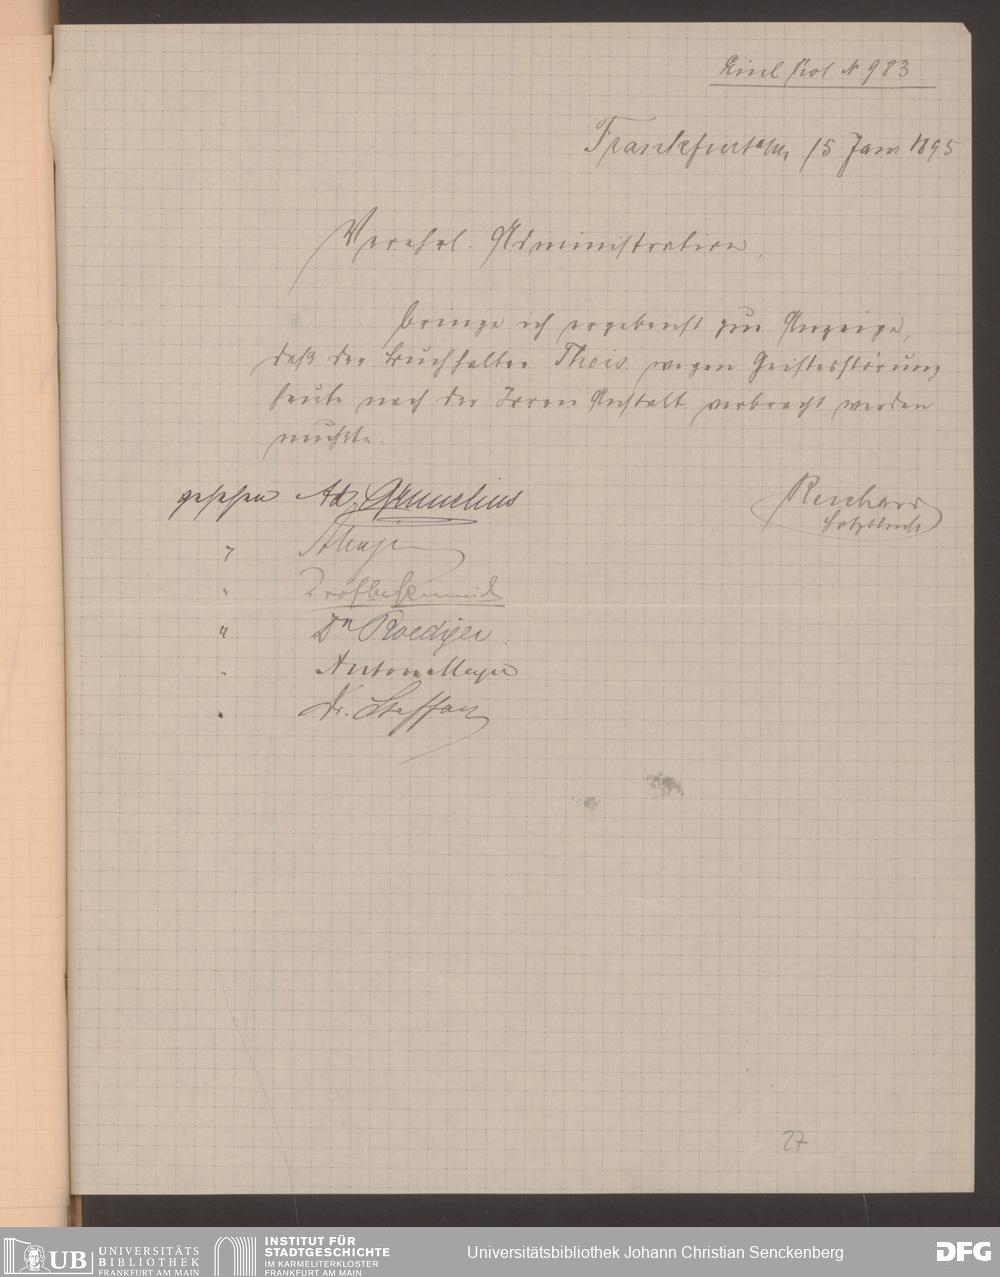 Einl Prot № 983
Frankfurt a/M, 15 Janr 1895
Verehrl. Administration,
bringe ich ergebenst zur Anzeige,
daß der Buchhalter Theis wegen Geistesstörung
heute nach der Irren Anstalt verbracht werden
mußte.
Reichard
gesehen Ad. Grunelius
"
"
" Dr Roediger
" Anton Meyer
" Dr. Steffan
27
UB UNIVERSITÄTS
BIBLIOTHEK
FRANKFURT AM MAIN
INSTITUT FÜR
STADTGESCHICHTE
IM KARMELITERKLOSTER
FRANKFURT AM MAIN
Universitätsbibliothek Johann Christian Senckenberg
DFG